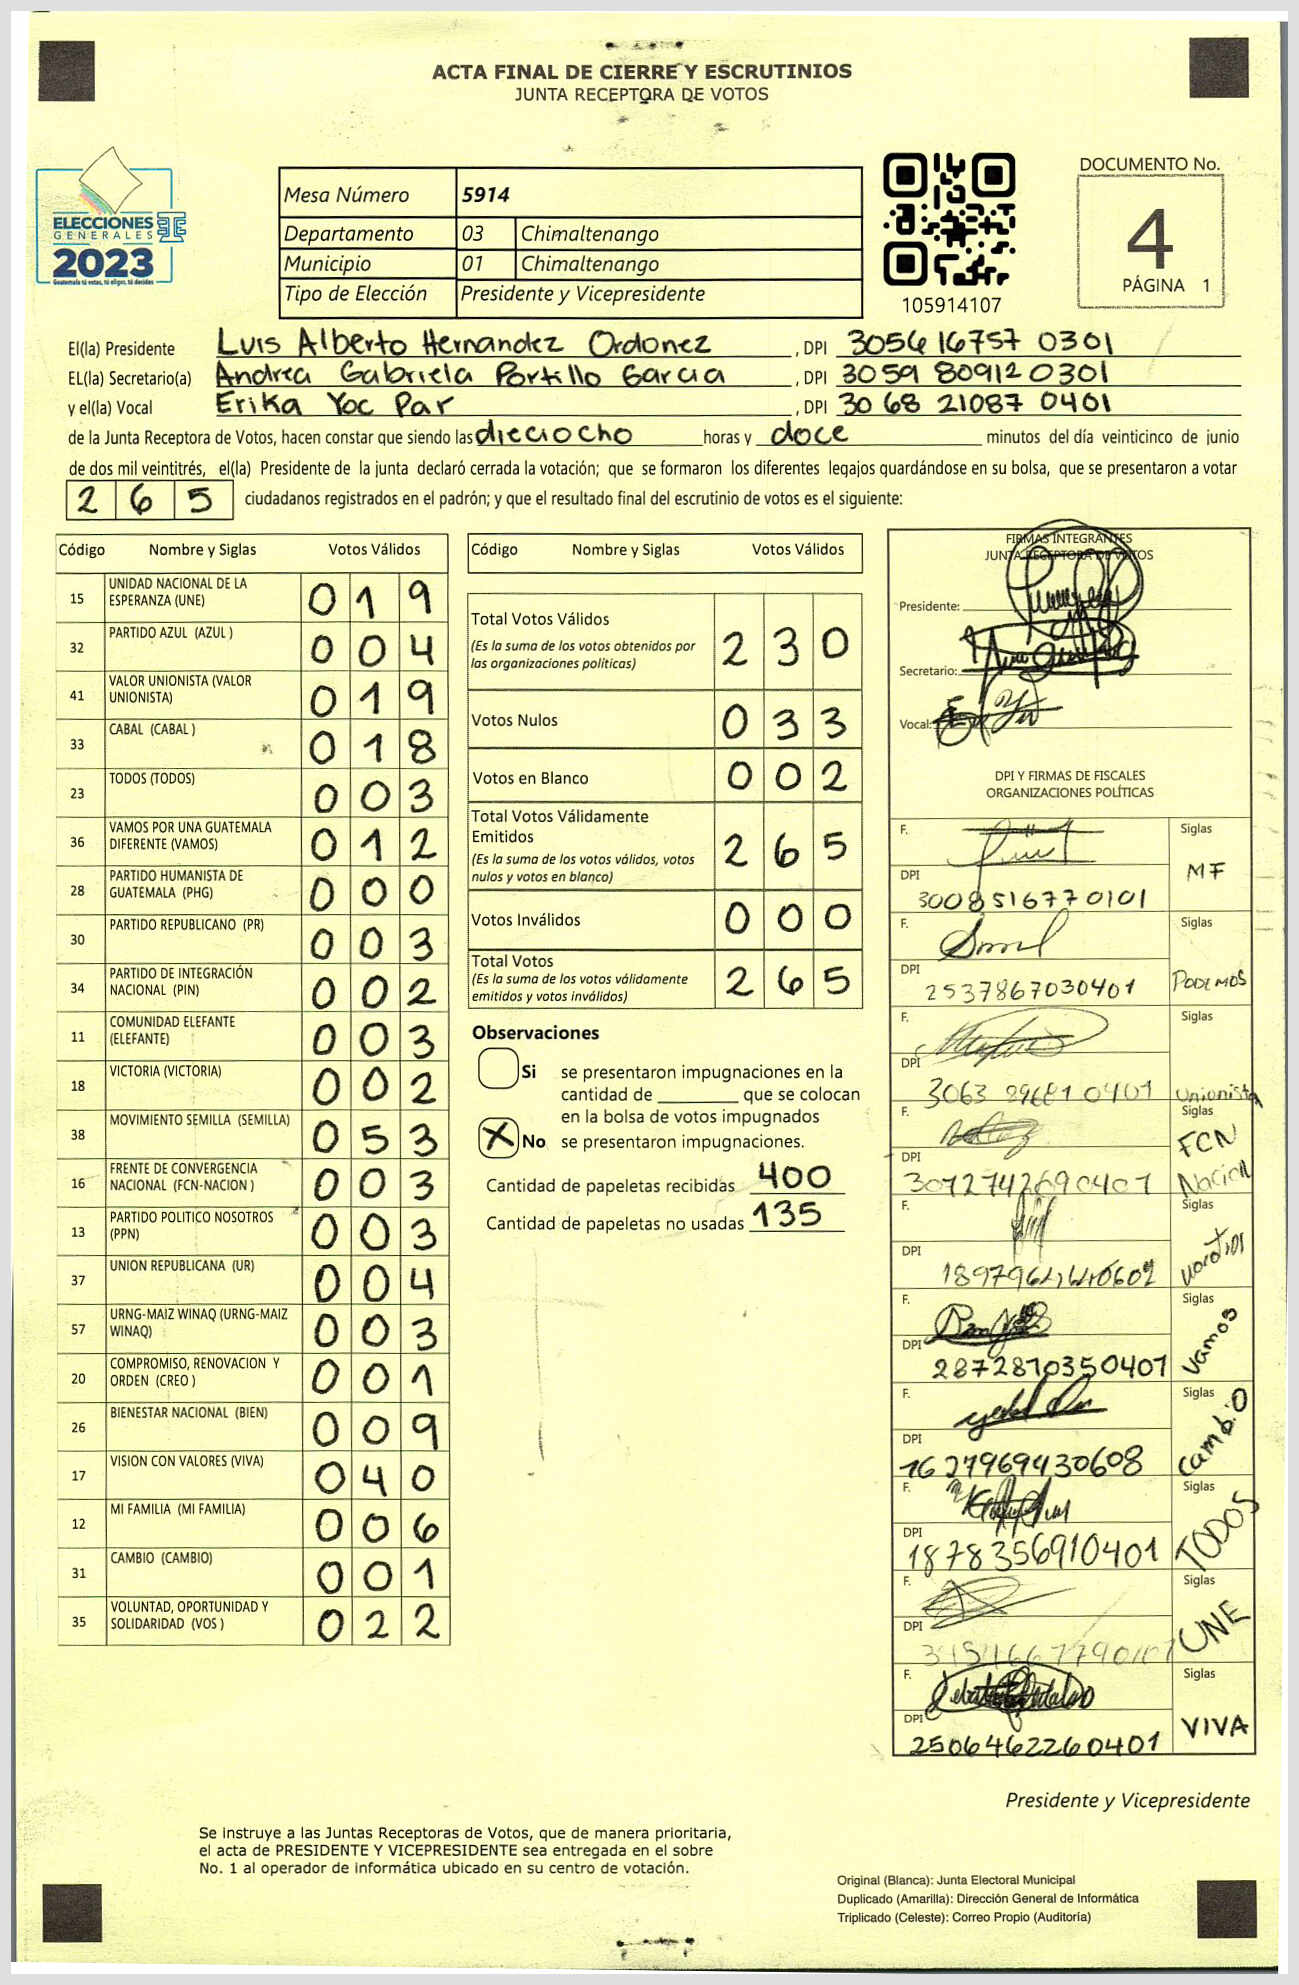 ACTA FINAL DE CIERRE Y ESCRUTINIOS
JUNTA RECEPTORA DE VOTOS
ELECCIONES
GENERALES
2023
Guatemala tú votas, tú eliges, tú decides
Mesa Número 5914
Departamento 03 Chimaltenango
Municipio 01 Chimaltenango
Tipo de Elección Presidente y Vicepresidente
105914107
DOCUMENTO No.
4
PÁGINA 1
El(la) Presidente Luis Alberto Hernandez Ordonez , DPI 3056 16757 0301
EL(la) Secretario(a) Andrea Gabriela Portillo Garcia , DPI 3059 80912 0301
y el(la) Vocal Erika Yoc Par , DPI 3068 21087 0401
de la Junta Receptora de Votos, hacen constar que siendo las dieciocho horas y doce minutos del día veinticinco de junio
de dos mil veintitrés, el(la) Presidente de la junta declaró cerrada la votación; que se formaron los diferentes legajos guardándose en su bolsa, que se presentaron a votar
2 6 5 ciudadanos registrados en el padrón; y que el resultado final del escrutinio de votos es el siguiente:
Código Nombre y Siglas Votos Válidos
15 UNIDAD NACIONAL DE LA ESPERANZA (UNE) 0 1 9
32 PARTIDO AZUL (AZUL ) 0 0 4
41 VALOR UNIONISTA (VALOR UNIONISTA) 0 1 9
33 CABAL (CABAL ) 0 1 8
23 TODOS (TODOS) 0 0 3
36 VAMOS POR UNA GUATEMALA DIFERENTE (VAMOS) 0 1 2
28 PARTIDO HUMANISTA DE GUATEMALA (PHG) 0 0 0
30 PARTIDO REPUBLICANO (PR) 0 0 3
34 PARTIDO DE INTEGRACIÓN NACIONAL (PIN) 0 0 2
11 COMUNIDAD ELEFANTE (ELEFANTE) 0 0 3
18 VICTORIA (VICTORIA) 0 0 2
38 MOVIMIENTO SEMILLA (SEMILLA) 0 5 3
16 FRENTE DE CONVERGENCIA NACIONAL (FCN-NACION ) 0 0 3
13 PARTIDO POLITICO NOSOTROS (PPN) 0 0 3
37 UNION REPUBLICANA (UR) 0 0 4
57 URNG-MAIZ WINAQ (URNG-MAIZ WINAQ) 0 0 3
20 COMPROMISO, RENOVACION Y ORDEN (CREO ) 0 0 1
26 BIENESTAR NACIONAL (BIEN) 0 0 9
17 VISION CON VALORES (VIVA) 0 4 0
12 MI FAMILIA (MI FAMILIA) 0 0 6
31 CAMBIO (CAMBIO) 0 0 1
35 VOLUNTAD, OPORTUNIDAD Y SOLIDARIDAD (VOS ) 0 2 2
Código Nombre y Siglas Votos Válidos
Total Votos Válidos 2 3 0
(Es la suma de los votos obtenidos por
las organizaciones politicas)
Votos Nulos 0 3 3
Votos en Blanco 0 0 2
Total Votos Válidamente
Emitidos 2 6 5
(Es la suma de los votos válidos, votos
nulos y votos en blanco)
Votos Inválidos 0 0 0
Total Votos 2 6 5
(Es la suma de los votos válidamente
emitidos y votos inválidos)
Observaciones
Si se presentaron impugnaciones en la
cantidad de ________ que se colocan
en la bolsa de votos impugnados
X No se presentaron impugnaciones.
Cantidad de papeletas recibidas 400
Cantidad de papeletas no usadas 135
FIRMAS INTEGRANTES
JUNTA RECEPTORA DE VOTOS
Presidente:
Secretario:
Vocal:
DPI Y FIRMAS DE FISCALES
ORGANIZACIONES POLÍTICAS
F. Siglas
MF
DPI
3008516770101
F. Siglas
DPI
2537867030401 PODEMOS
F. Siglas
DPI
Unionista
F. Siglas
FCN
DPI
3072742690401 Nacion
F. Siglas
DPI
F. Siglas
Vamos
DPI
2872870350401
F. Siglas
Cambio
DPI
1627969430608
F. Siglas
TODOS
DPI
1878356910401
F. Siglas
UNE
DPI
F. Siglas
DPI VIVA
2506462260401
Presidente y Vicepresidente
Se instruye a las Juntas Receptoras de Votos, que de manera prioritaria,
el acta de PRESIDENTE Y VICEPRESIDENTE sea entregada en el sobre
No. 1 al operador de informática ubicado en su centro de votación.
Original (Blanca): Junta Electoral Municipal
Duplicado (Amarilla): Dirección General de Informática
Triplicado (Celeste): Correo Propio (Auditoría)